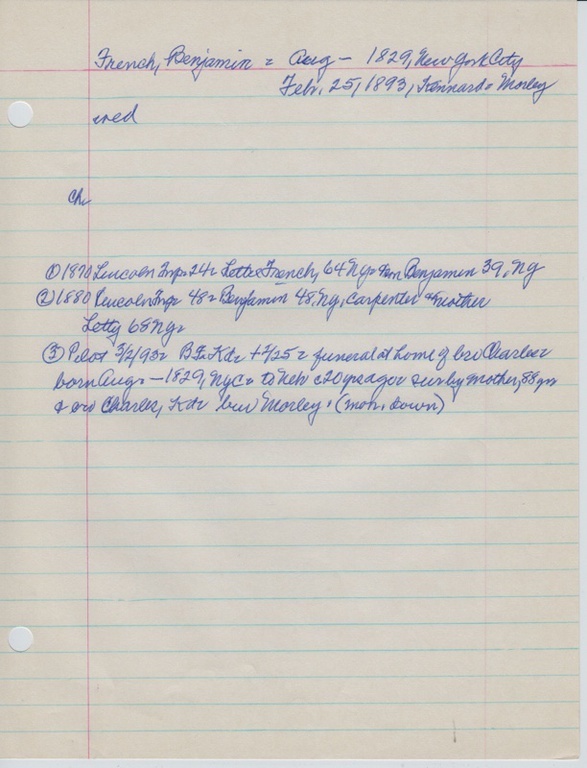 French, Benjamin = Aug — 1829, New York City
Febr. 25, 1893, Kennard = Morley
wed
ch
① 1870 Lincoln Twp 24 = Lettie French, 64 NY = Benjamin 39, NY
② 1880 Lincoln Twp 48 = Benjamin 48, NY, Carpenter = mother
Letty 68 NY =
③ Pilot 3/2/93 = B.F. Kd = + 2/25 = funeral at home of bro Charles =
born Aug = — 1829, NYC = to Neb c20 yrs ago = sur by mother, 88 yrs
& bro Charles, Kd = bur Morley. (mon. down)